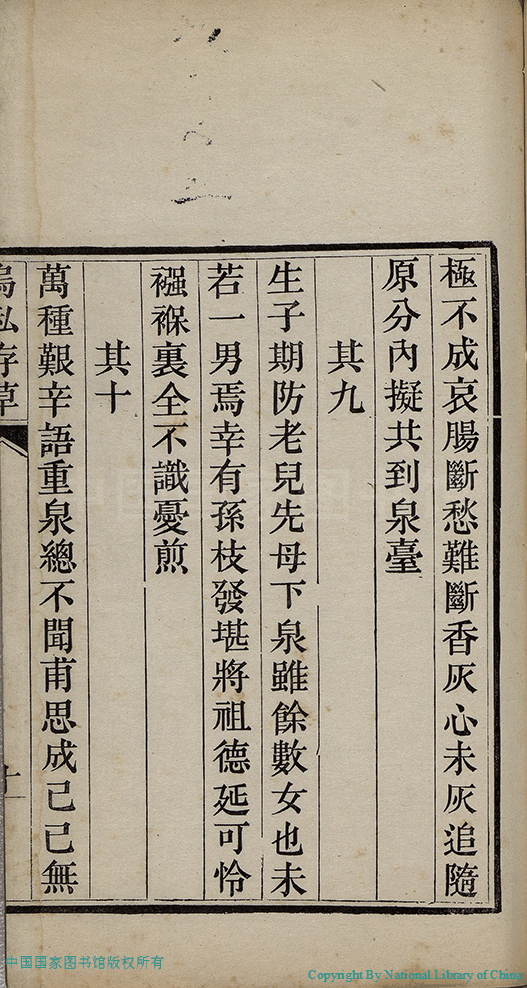 極不成哀腸斷愁難斷香灰心未灰追隨
原分內擬共到泉臺
其九
生子期防老兒先母下泉雖餘數女也未
若一男焉幸有孫枝發堪將祖德延可怜
襁褓裏全不識憂煎
其十
萬種艱辛語重泉總不聞甫思成己己無
烏私存草
中国国家图书馆版权所有
Copyright By National Library of China